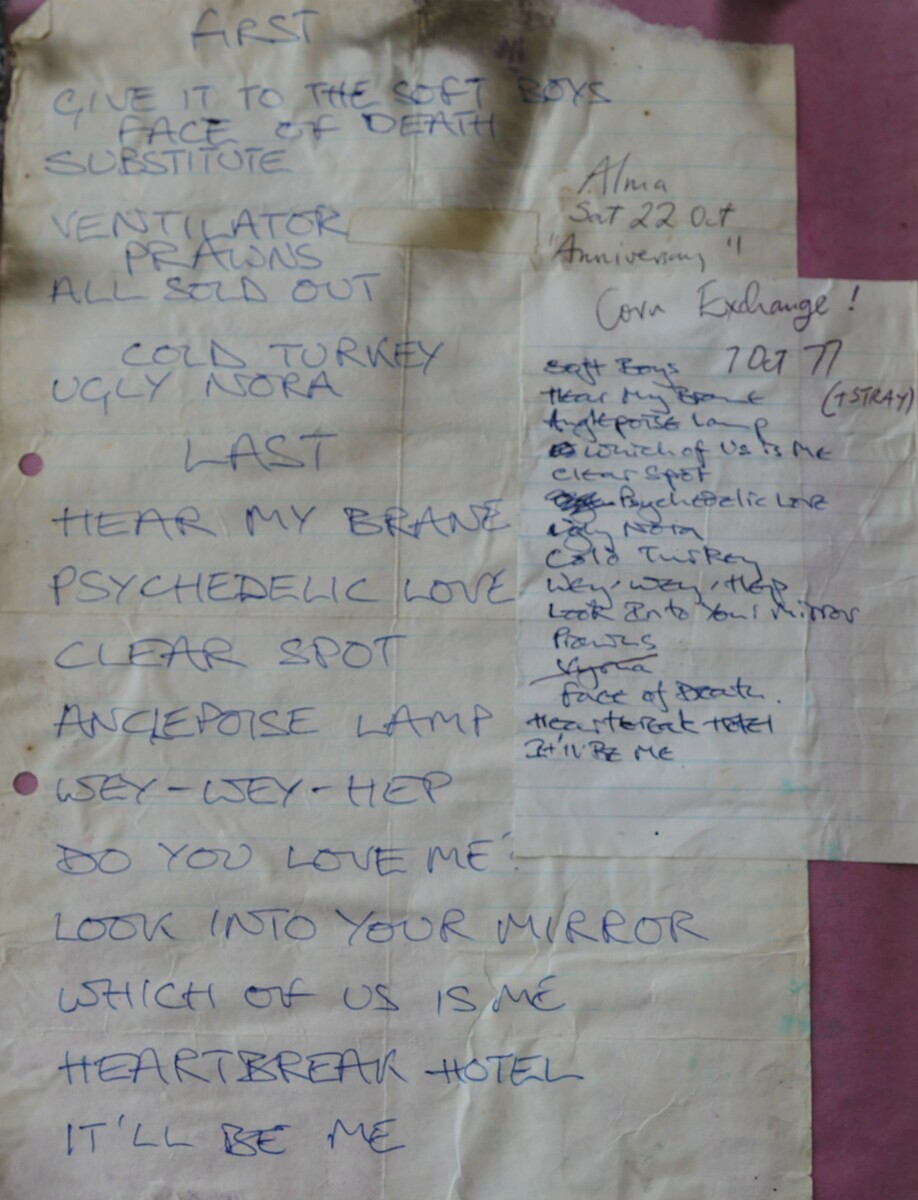 FIRST
GIVE IT TO THE SOFT BOYS
FACE OF DEATH
SUBSTITUTE
VENTILATOR
PRAWNS
ALL SOLD OUT
COLD TURKEY
UGLY NORA
LAST
HEAR MY BRANE
PSYCHEDELIC LOVE
CLEAR SPOT
ANGLEPOISE LAMP
WEY-WEY-HEP
DO YOU LOVE ME?
LOOK INTO YOUR MIRROR
WHICH OF US IS ME
HEARTBREAK HOTEL
IT'LL BE ME
Alma
Sat 22 Oct
"Anniversary"
Corn Exchange!
7 Oct 77
(+STRAY)
Soft Boys
Hear My Brane
Anglepoise Lamp
Which of Us is Me
Clear Spot
Psychedelic Love
Ugly Nora
Cold Turkey
Wey, Wey, Hep
Look Into Your Mirror
Prawns
Face of Death.
Heartbreak Hotel
It'll Be Me